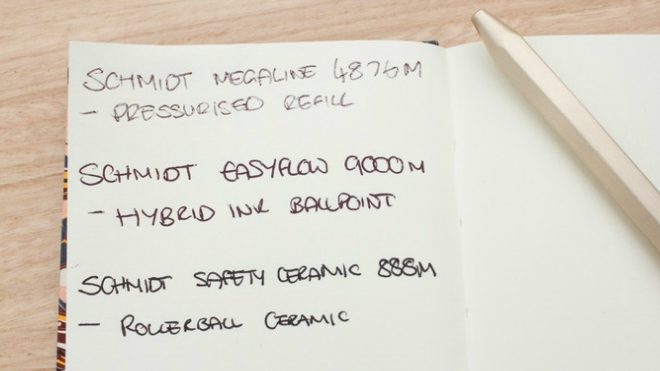 SCHMIDT MEGALINE 4876M
- PRESSURISED REFILL
SCHMIDT EASYFLOW 9000M
- HYBRID INK BALLPOINT
SCHMIDT SAFETY CERAMIC 888M
- ROLLERBALL CERAMIC